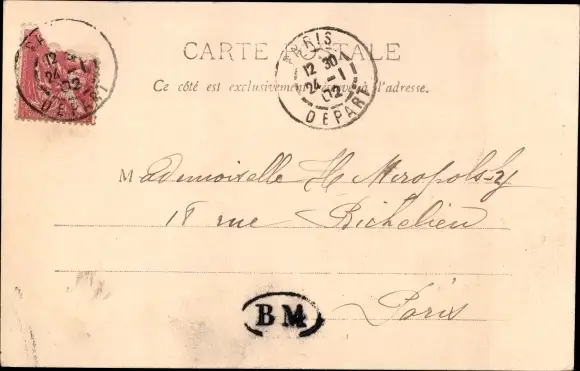 CARTE POSTALE
PARIS
12 30
24 - 1
02
DEPART
12
24 - 1
02
DEPART
Ce côté est exclusivement réservé à l'adresse.
Mademoiselle H Meropolsky
18 rue Richelieu
Paris
BM